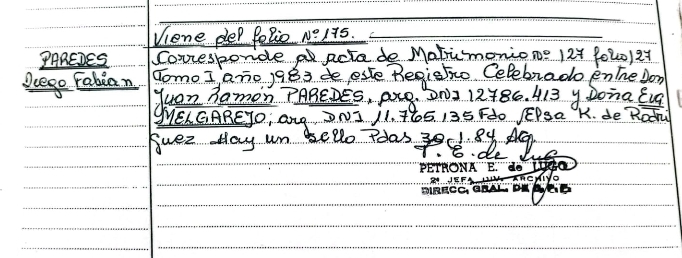 Viene del folio Nº 175.
PAREDES
Diego Fabian
Corresponde al acta de Matrimonio nº 127 folio 127
Tomo I año 1983 de este Registro Celebrado entre Don
Juan Ramón PAREDES, arg. DNI 12786.413 y Doña Eva
MELGAREJO, arg DNI 11.765.135 Fdo Elsa K. de Rodri
guez Hay un sello Pdas 30.1.84
PETRONA E. de LUGO
2ª JEFA DIV. ARCHIVO
DIRECC. GRAL. DE